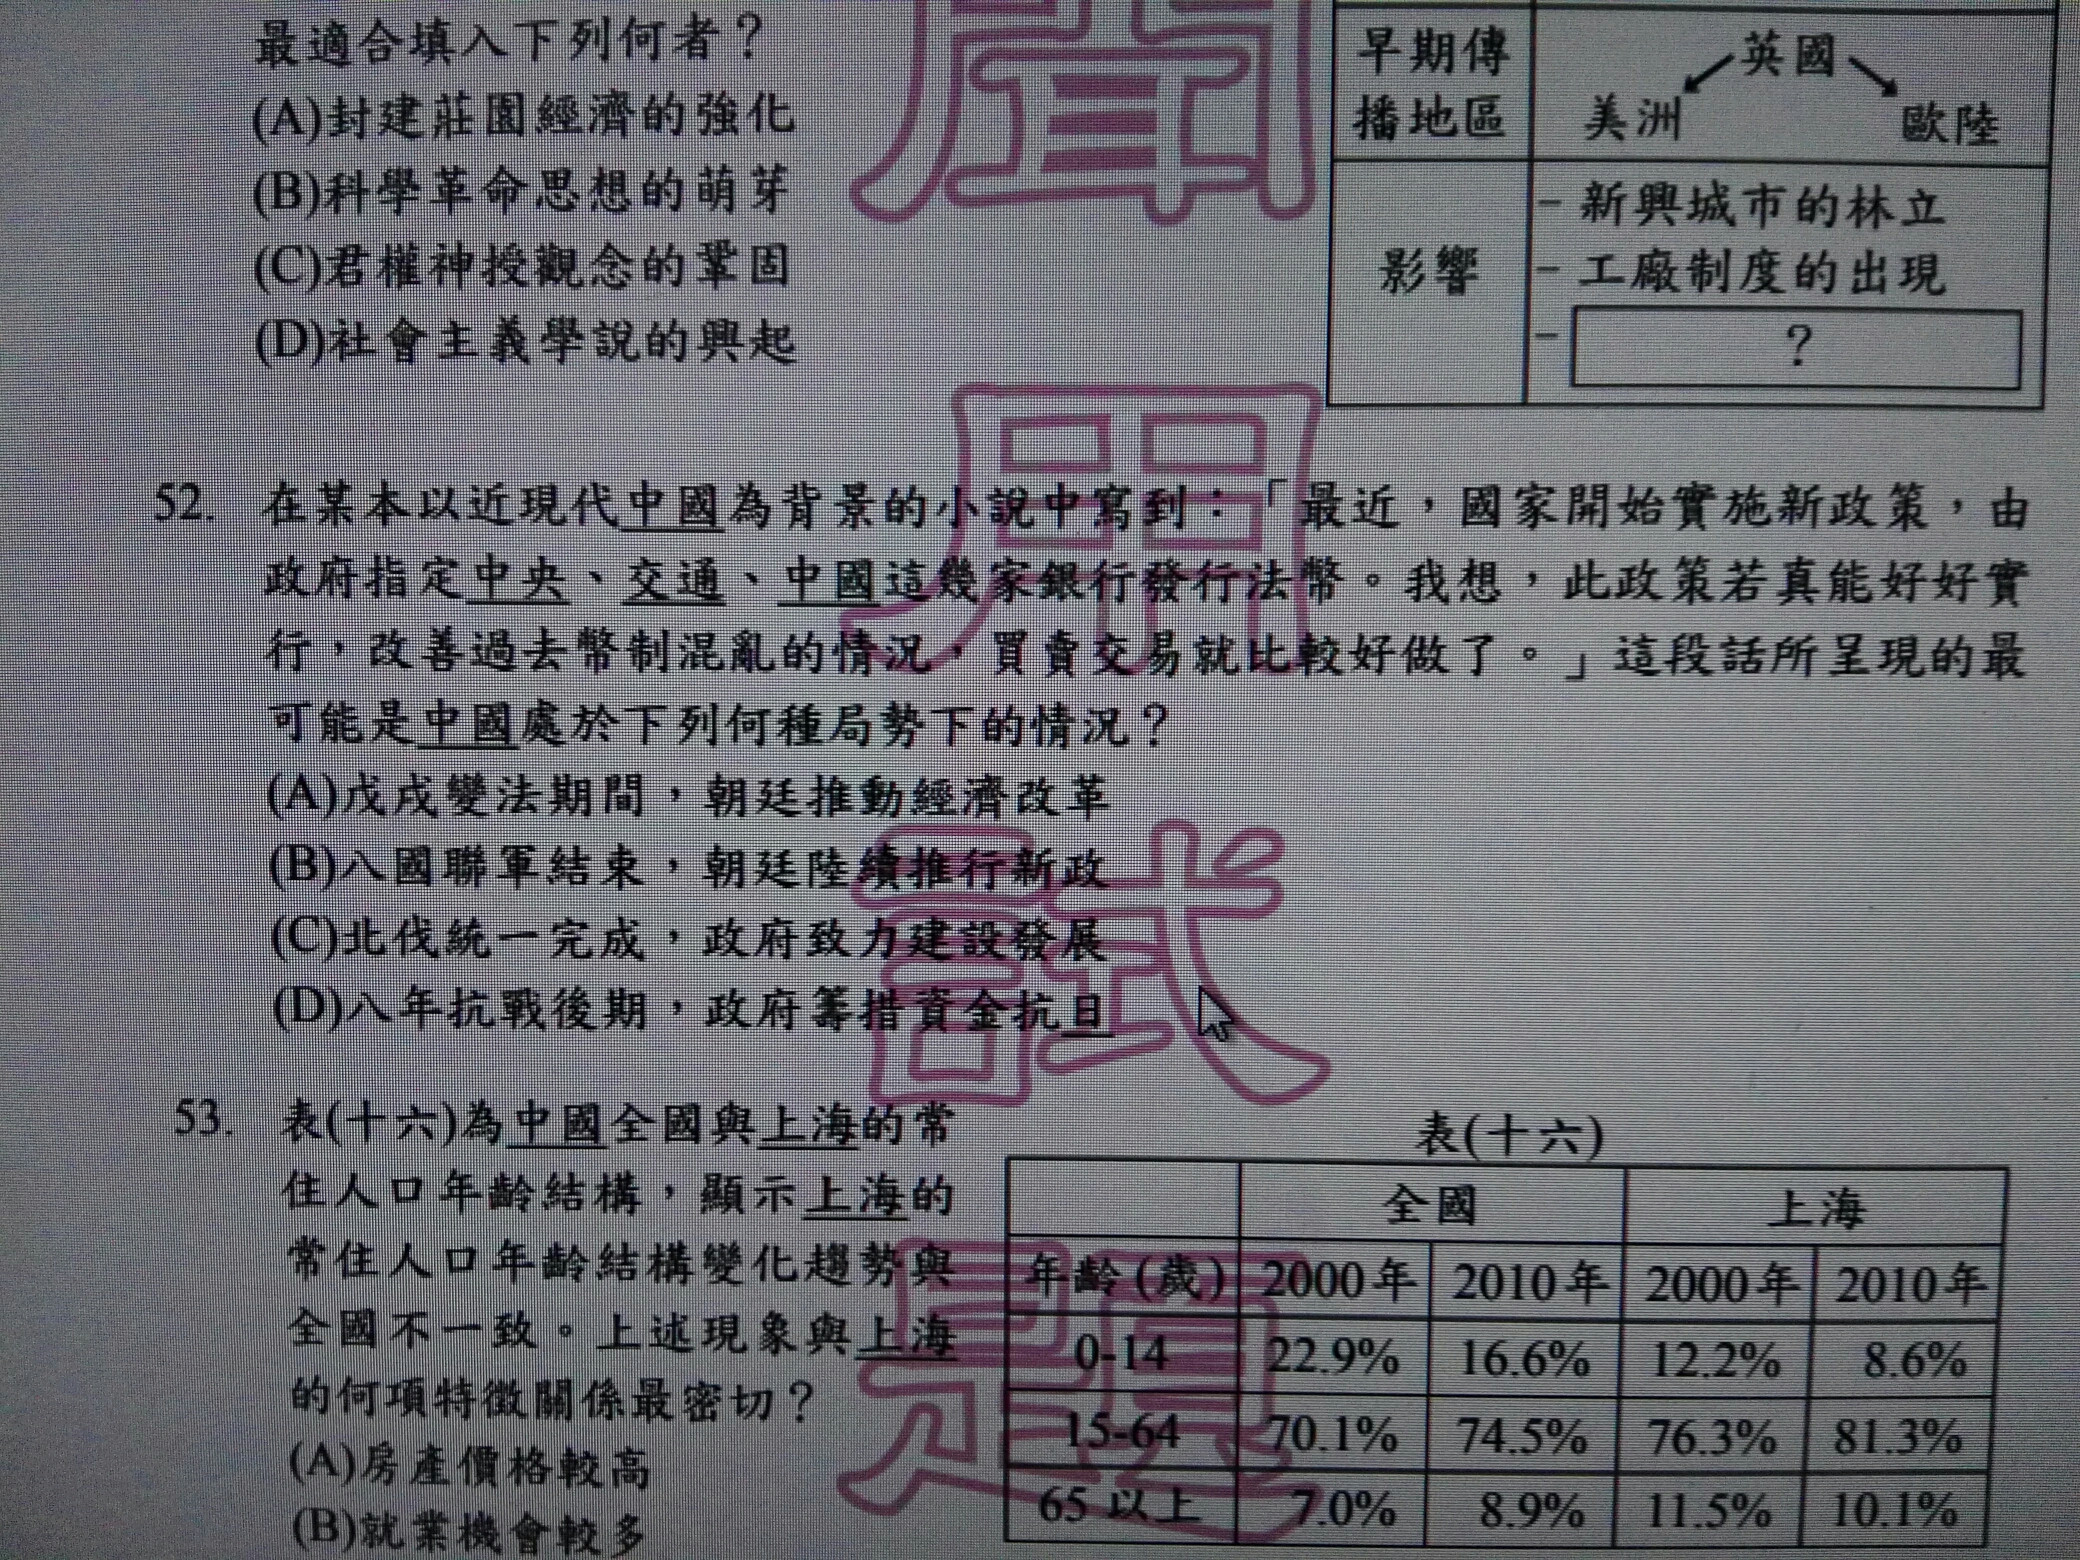 最適合填入下列何者？
(A)封建莊園經濟的強化
(B)科學革命思想的萌芽
(C)君權神授觀念的鞏固
(D)社會主義學說的興起
早期傳播地區
英國
美洲 歐陸
影響
- 新興城市的林立
- 工廠制度的出現
- ？
52. 在某本以近現代中國為背景的小說中寫到：「最近，國家開始實施新政策，由
政府指定中央、交通、中國這幾家銀行發行法幣。我想，此政策若真能好好實
行，改善過去幣制混亂的情況，買賣交易就比較好做了。」這段話所呈現的最
可能是中國處於下列何種局勢下的情況？
(A)戊戌變法期間，朝廷推動經濟改革
(B)八國聯軍結束，朝廷陸續推行新政
(C)北伐統一完成，政府致力建設發展
(D)八年抗戰後期，政府籌措資金抗日
53. 表(十六)為中國全國與上海的常
住人口年齡結構，顯示上海的
常住人口年齡結構變化趨勢與
全國不一致。上述現象與上海
的何項特徵關係最密切？
(A)房產價格較高
(B)就業機會較多
表(十六)
全國 上海
年齡(歲) 2000年 2010年 2000年 2010年
0-14 22.9% 16.6% 12.2% 8.6%
15-64 70.1% 74.5% 76.3% 81.3%
65以上 7.0% 8.9% 11.5% 10.1%
用
試